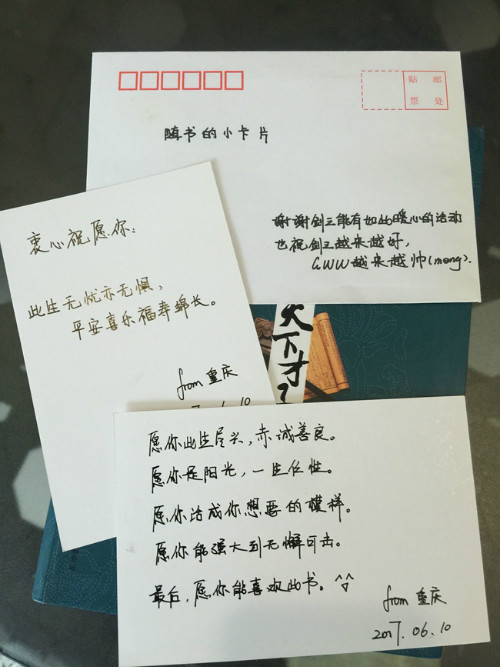 贴 邮
票 处
随书的小卡片
谢谢剑三能有如此暖心的活动
也祝剑三越来越好,
GWW越来越帅(meng).
衷心祝愿你:
此生无忧亦无惧,
平安喜乐福幸绵长。
from 重庆
天下才
愿你此生尽头,赤诚善良。
愿你是阳光,一生任性。
愿你活成你想要的模样。
愿你能强大到无懈可击。
最后,愿你能喜欢此书。^^
from 重庆
2017.06.10